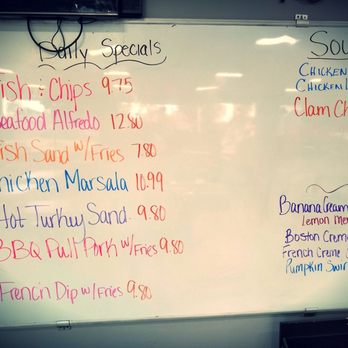 Daily Specials
ish & Chips 9.75
eafood Alfredo 12.80
ish Sand w/Fries 7.80
hicken Marsala 10.99
Hot Turkey Sand. 9.80
BBQ Pull Pork w/Fries 9.80
French Dip w/Fries 9.80
Sou
Chicken
Chicken
Clam Ch
Banana Cream
Lemon Me
Boston Creme
French Creme
Pumpkin Swir